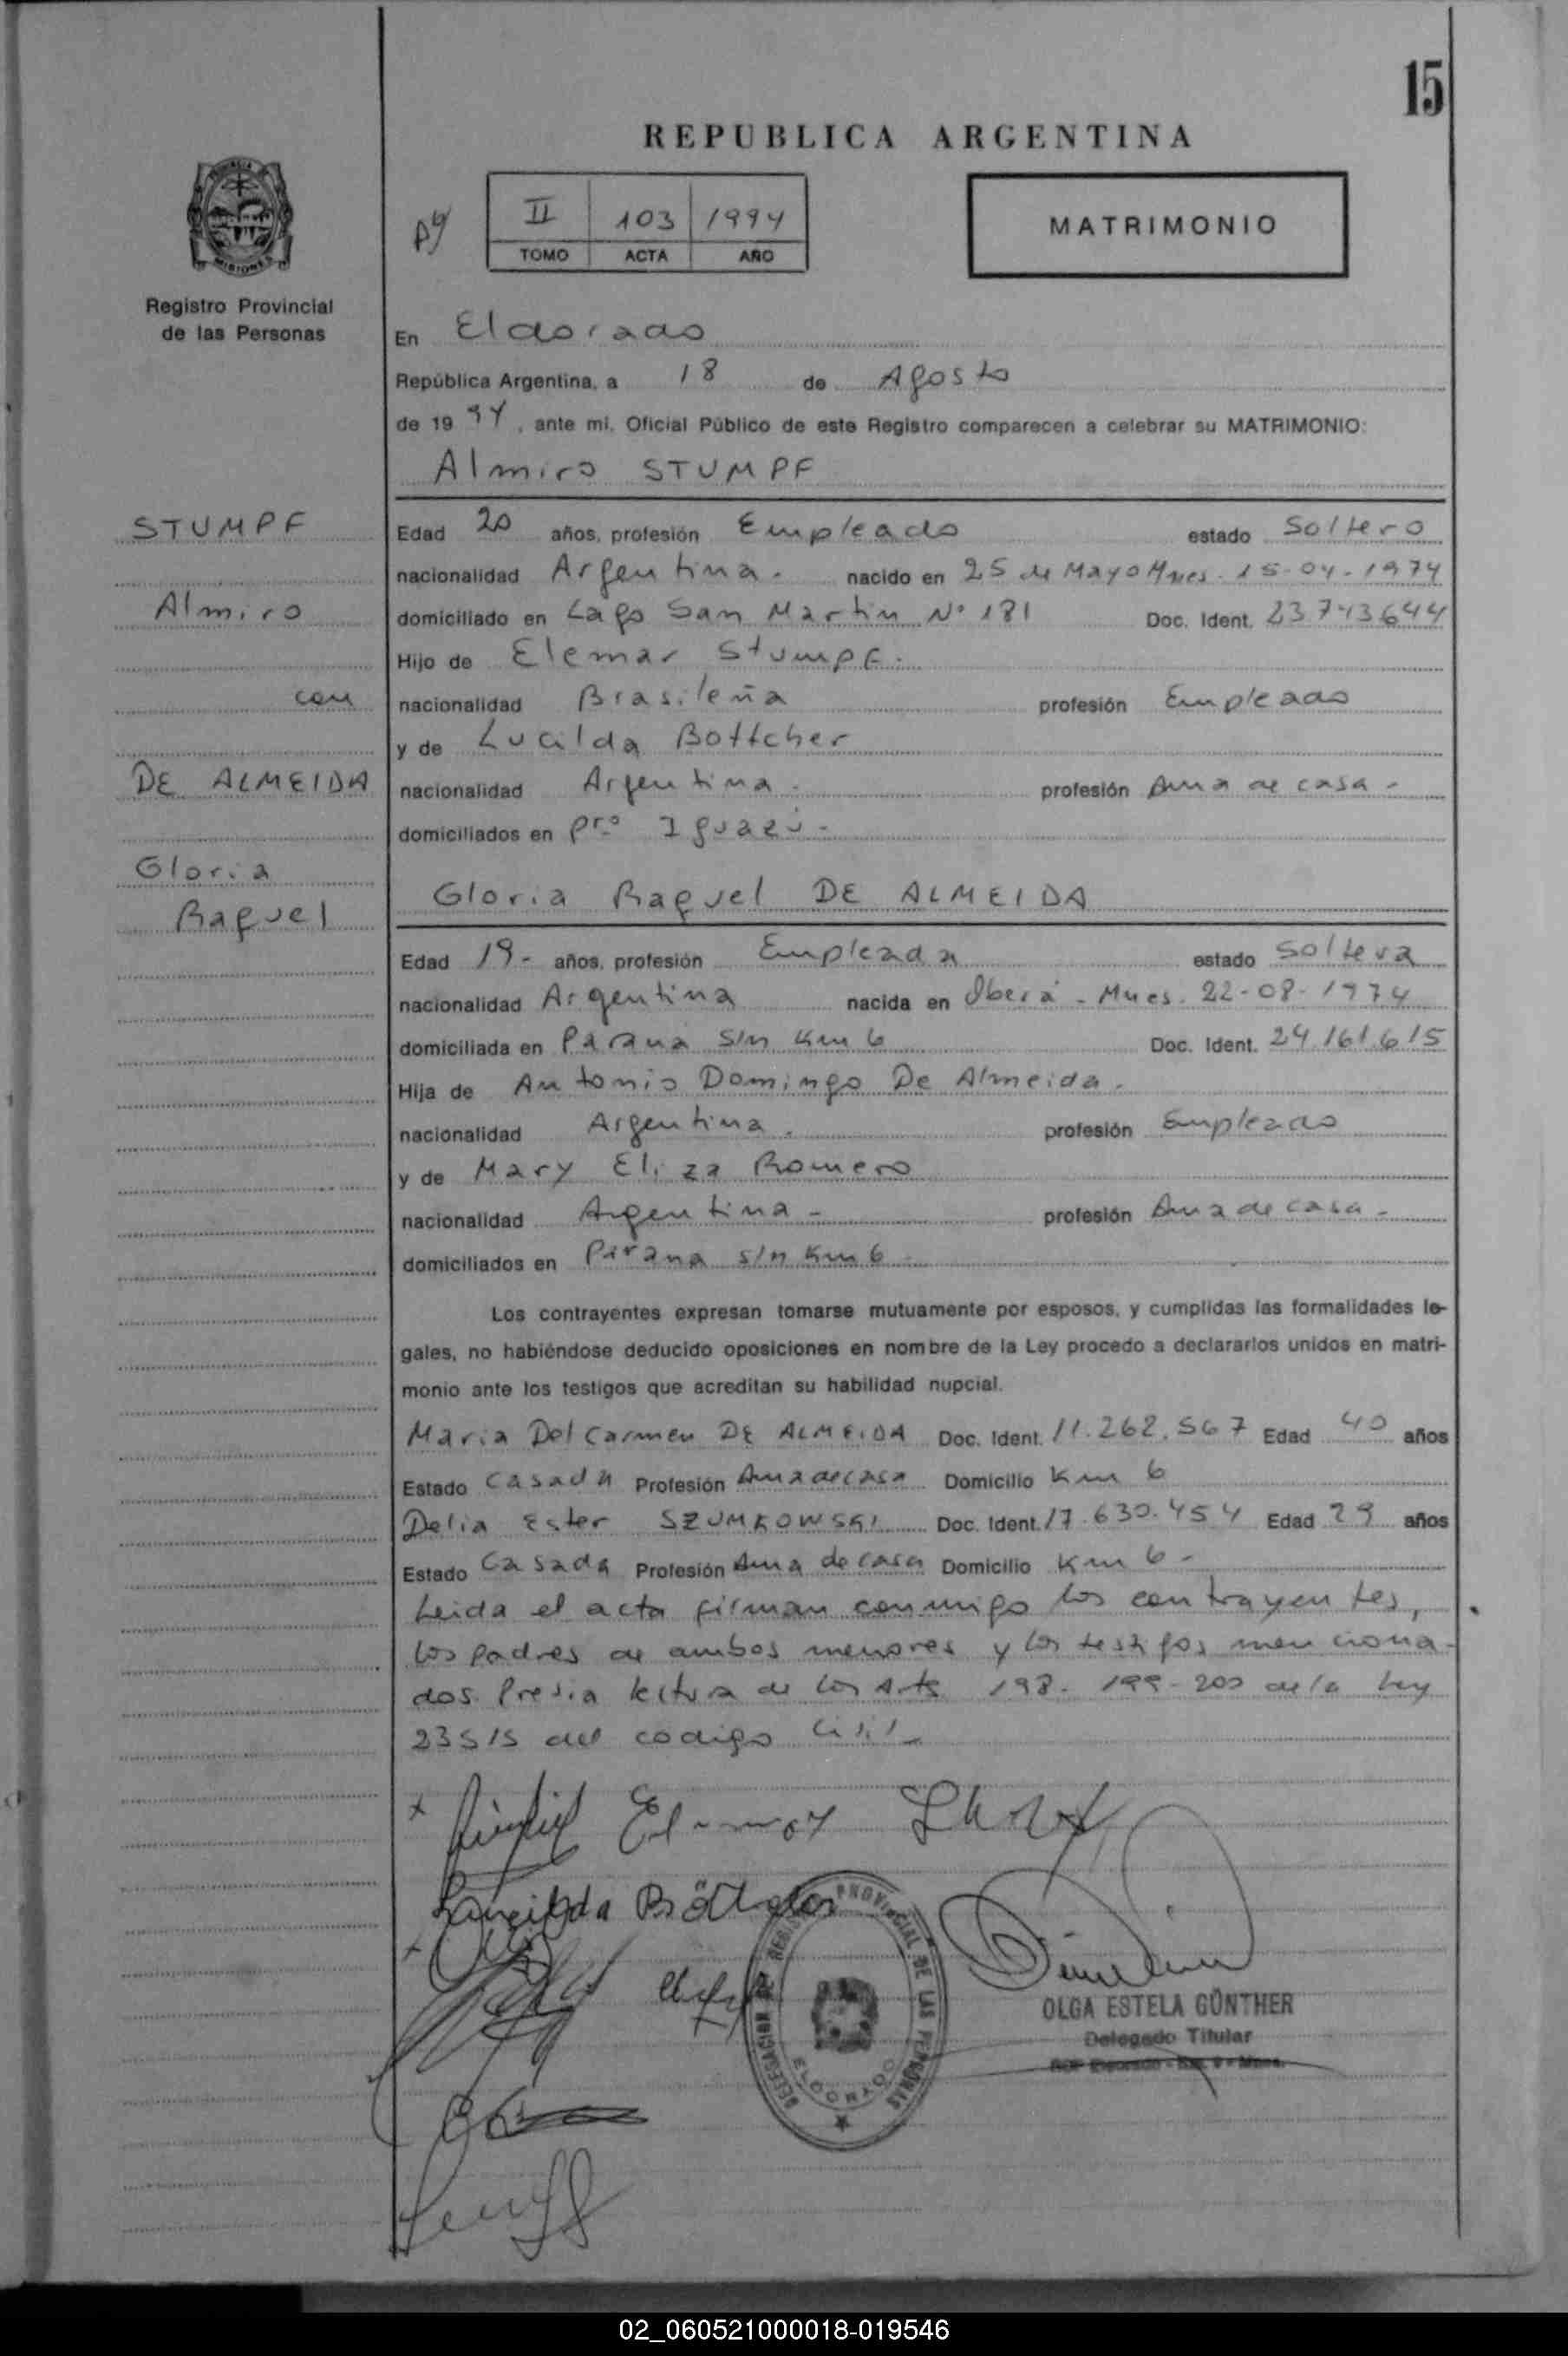 15
REPUBLICA ARGENTINA
II 103 1994
TOMO ACTA AÑO
MATRIMONIO
MISIONES
Registro Provincial
de las Personas
En Eldorado
República Argentina, a 18 de Agosto
de 19 94, ante mi, Oficial Público de este Registro comparecen a celebrar su MATRIMONIO:
Almiro STUMPF
STUMPF
Almiro
con
DE ALMEIDA
Gloria
Raquel
Edad 20 años, profesión Empleado estado Soltero
nacionalidad Argentina. nacido en 25 de Mayo Mnes. 15-04-1974
domiciliado en Lago San Martin Nº 181 Doc. Ident. 23743644
Hijo de Elemar Stumpf.
nacionalidad Brasileña profesión Empleado
y de Lucilda Bottcher
nacionalidad Argentina. profesión Ama de casa-
domiciliados en Pto Iguazú-
Gloria Raquel DE ALMEIDA
Edad 19- años, profesión Empleada estado Soltera
nacionalidad Argentina nacida en Oberá - Mnes. 22-08-1974
domiciliada en Parana s/n Km 6 Doc. Ident. 24.161.615
Hija de Antonio Domingo De Almeida.
nacionalidad Argentina. profesión Empleado
y de Mary Eliza Romero
nacionalidad Argentina- profesión Ama de casa-
domiciliados en Parana s/n Km 6-
Los contrayentes expresan tomarse mutuamente por esposos, y cumplidas las formalidades le-
gales, no habiéndose deducido oposiciones en nombre de la Ley procedo a declararlos unidos en matri-
monio ante los testigos que acreditan su habilidad nupcial.
Maria Del Carmen DE ALMEIDA Doc. Ident. 11.262.567 Edad 40 años
Estado Casada Profesión Ama de casa Domicilio Km 6
Delia Ester SZUMKOWSKI Doc. Ident. 17.630.454 Edad 29 años
Estado Casada Profesión Ama de casa Domicilio Km 6-
Leida el acta firman conmigo los contrayentes,
los padres de ambos menores y los testigos menciona-
dos. Previa lectura de los Arts 198- 199-200 de la Ley
23515 del codigo Civil-
Elemar
DELEGACION DE REGISTRO PROVINCIAL DE LAS PERSONAS
ELDORADO
OLGA ESTELA GÜNTHER
Delegado Titular
02_060521000018-019546